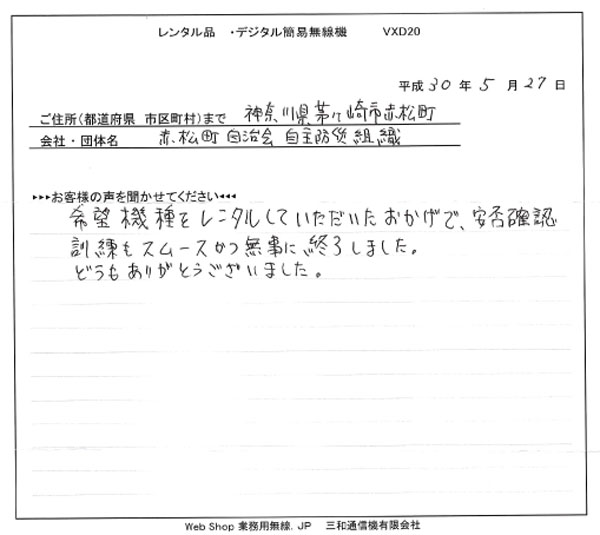 レンタル品 ・デジタル簡易無線機 VXD20
平成 30 年 5 月 27 日
ご住所(都道府県 市区町村)まで 神奈川県茅ヶ崎市赤松町
会社・団体名 赤松町自治会 自主防災組織
▸▸▸お客様の声を聞かせてください◂◂◂
希望機種をレンタルしていただいたおかげで、安否確認
訓練もスムースかつ無事に終了しました。
どうもありがとうございました。
Web Shop 業務用無線. JP 三和通信機有限会社